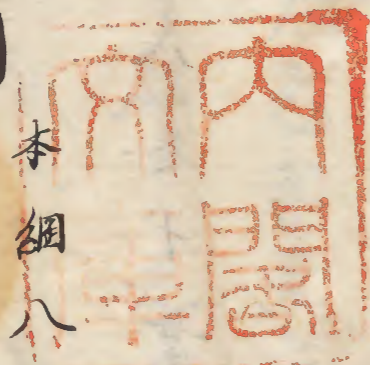 內閣
文庫
本綱八